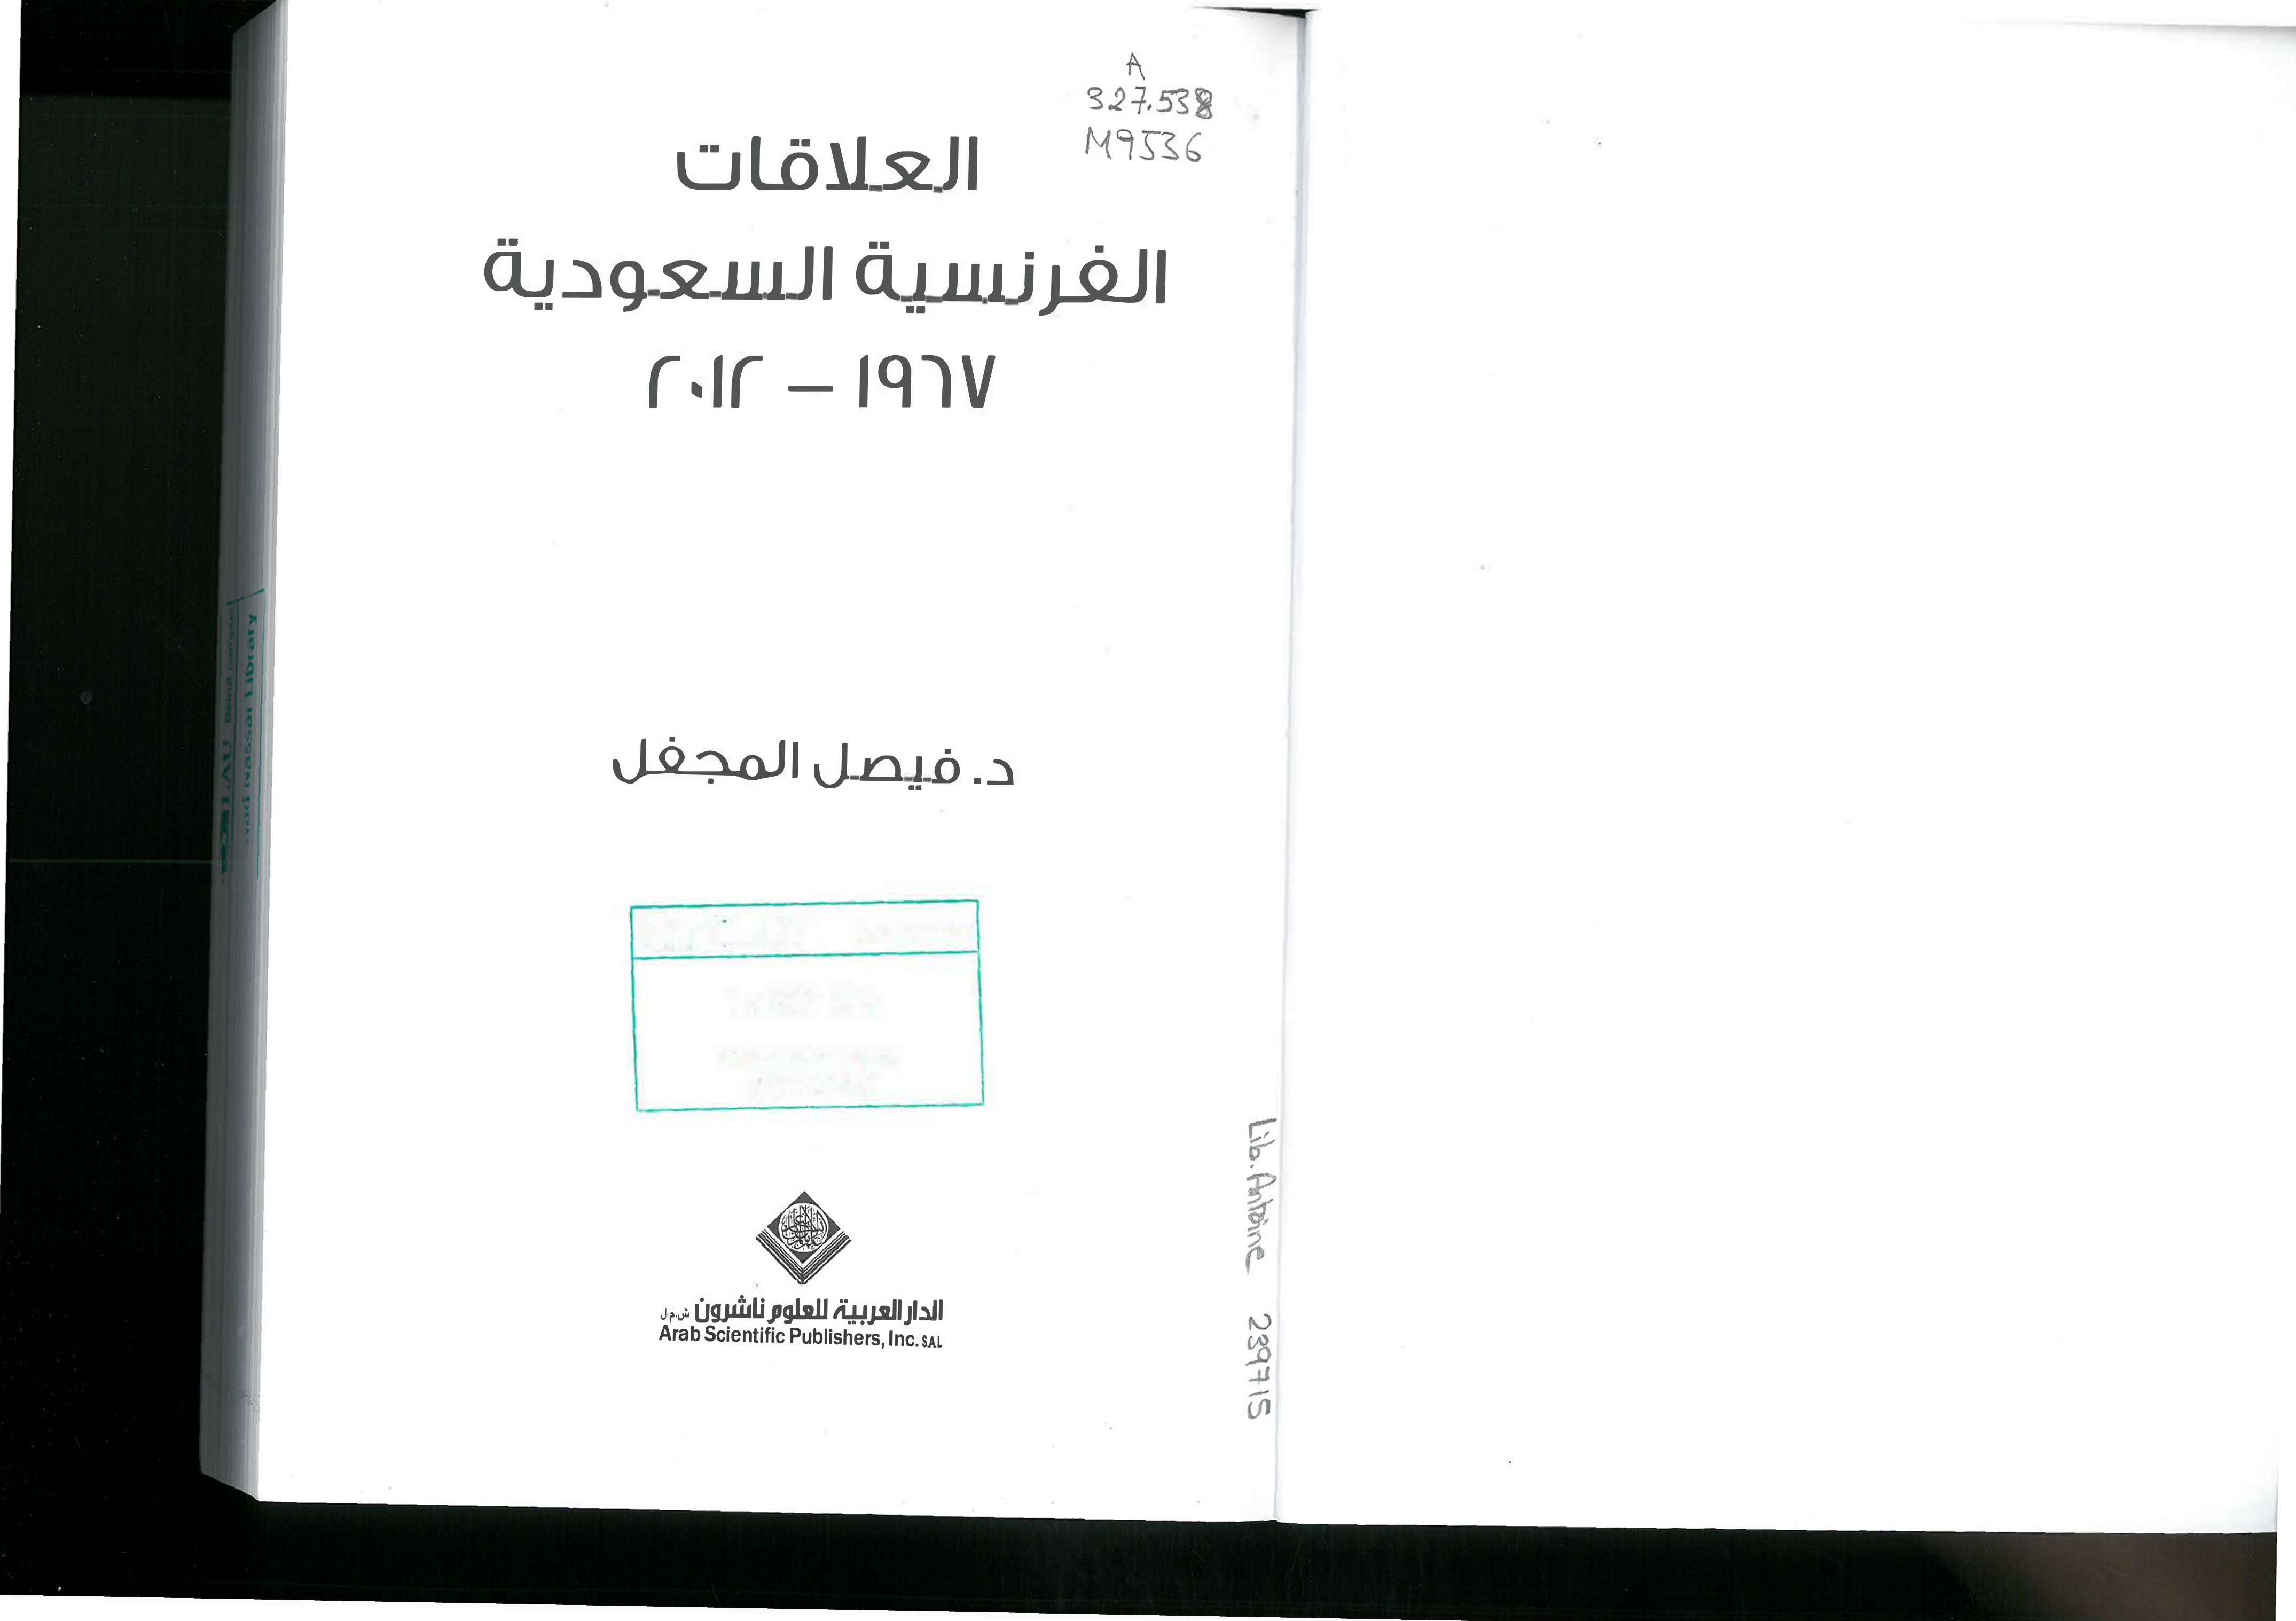 A
327.538
M9536
العلاقات
الفرنسية السعودية
١٩٦٧ – ٢٠١٢
د. فيصل المجفل
الدار العربية للعلوم ناشرون ش.م.ل
Arab Scientific Publishers, Inc. S.A.L
Lib. Antoine 239715
Beirut Campus
Riyad Nassar Library